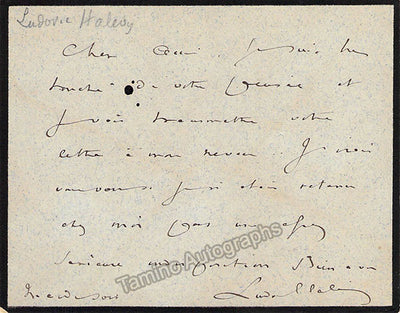 Ludovic Halévy
Cher ami. Je suis très
touché de votre pensée et
je vais transmettre votre
lettre à mon neveu. Je
vous. Je suis
chez moi par une assez
sérieuse Bien à vous
Mercredi soir Ludovic Halévy
Tamino Autographs